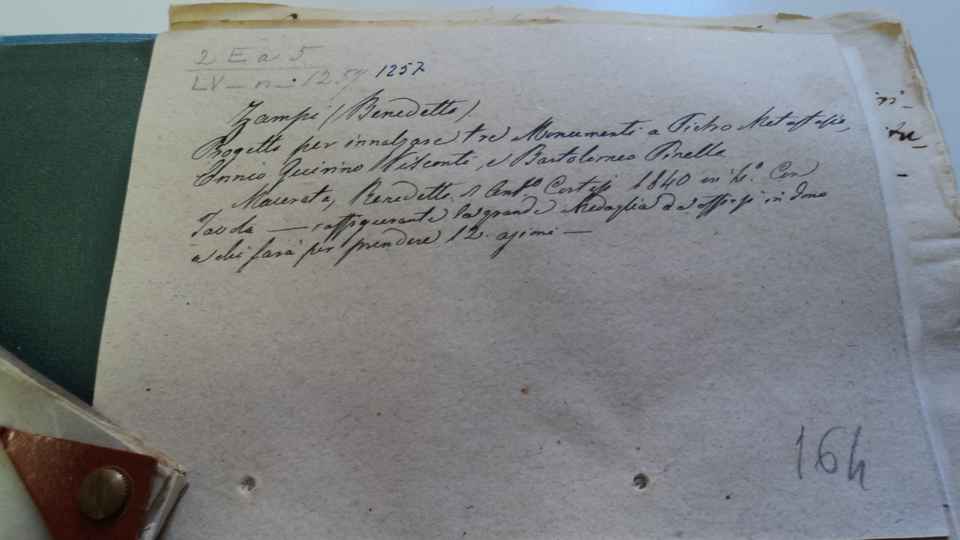 2 E a 5
LV - n - 1257 1257
Zampi (Benedetto)
Progetto per innalzare tre Monumenti a Pietro Metastasio,
Ennio Quirino Visconti, e Bartolomeo Pinelli
Macerata, Benedetto di Ant.º Cortesi 1840 in 4.º Con
Tavola — raffigurante la grande Medaglia da offrirsi in dono
a chi farà per prendere 12 azioni —
164